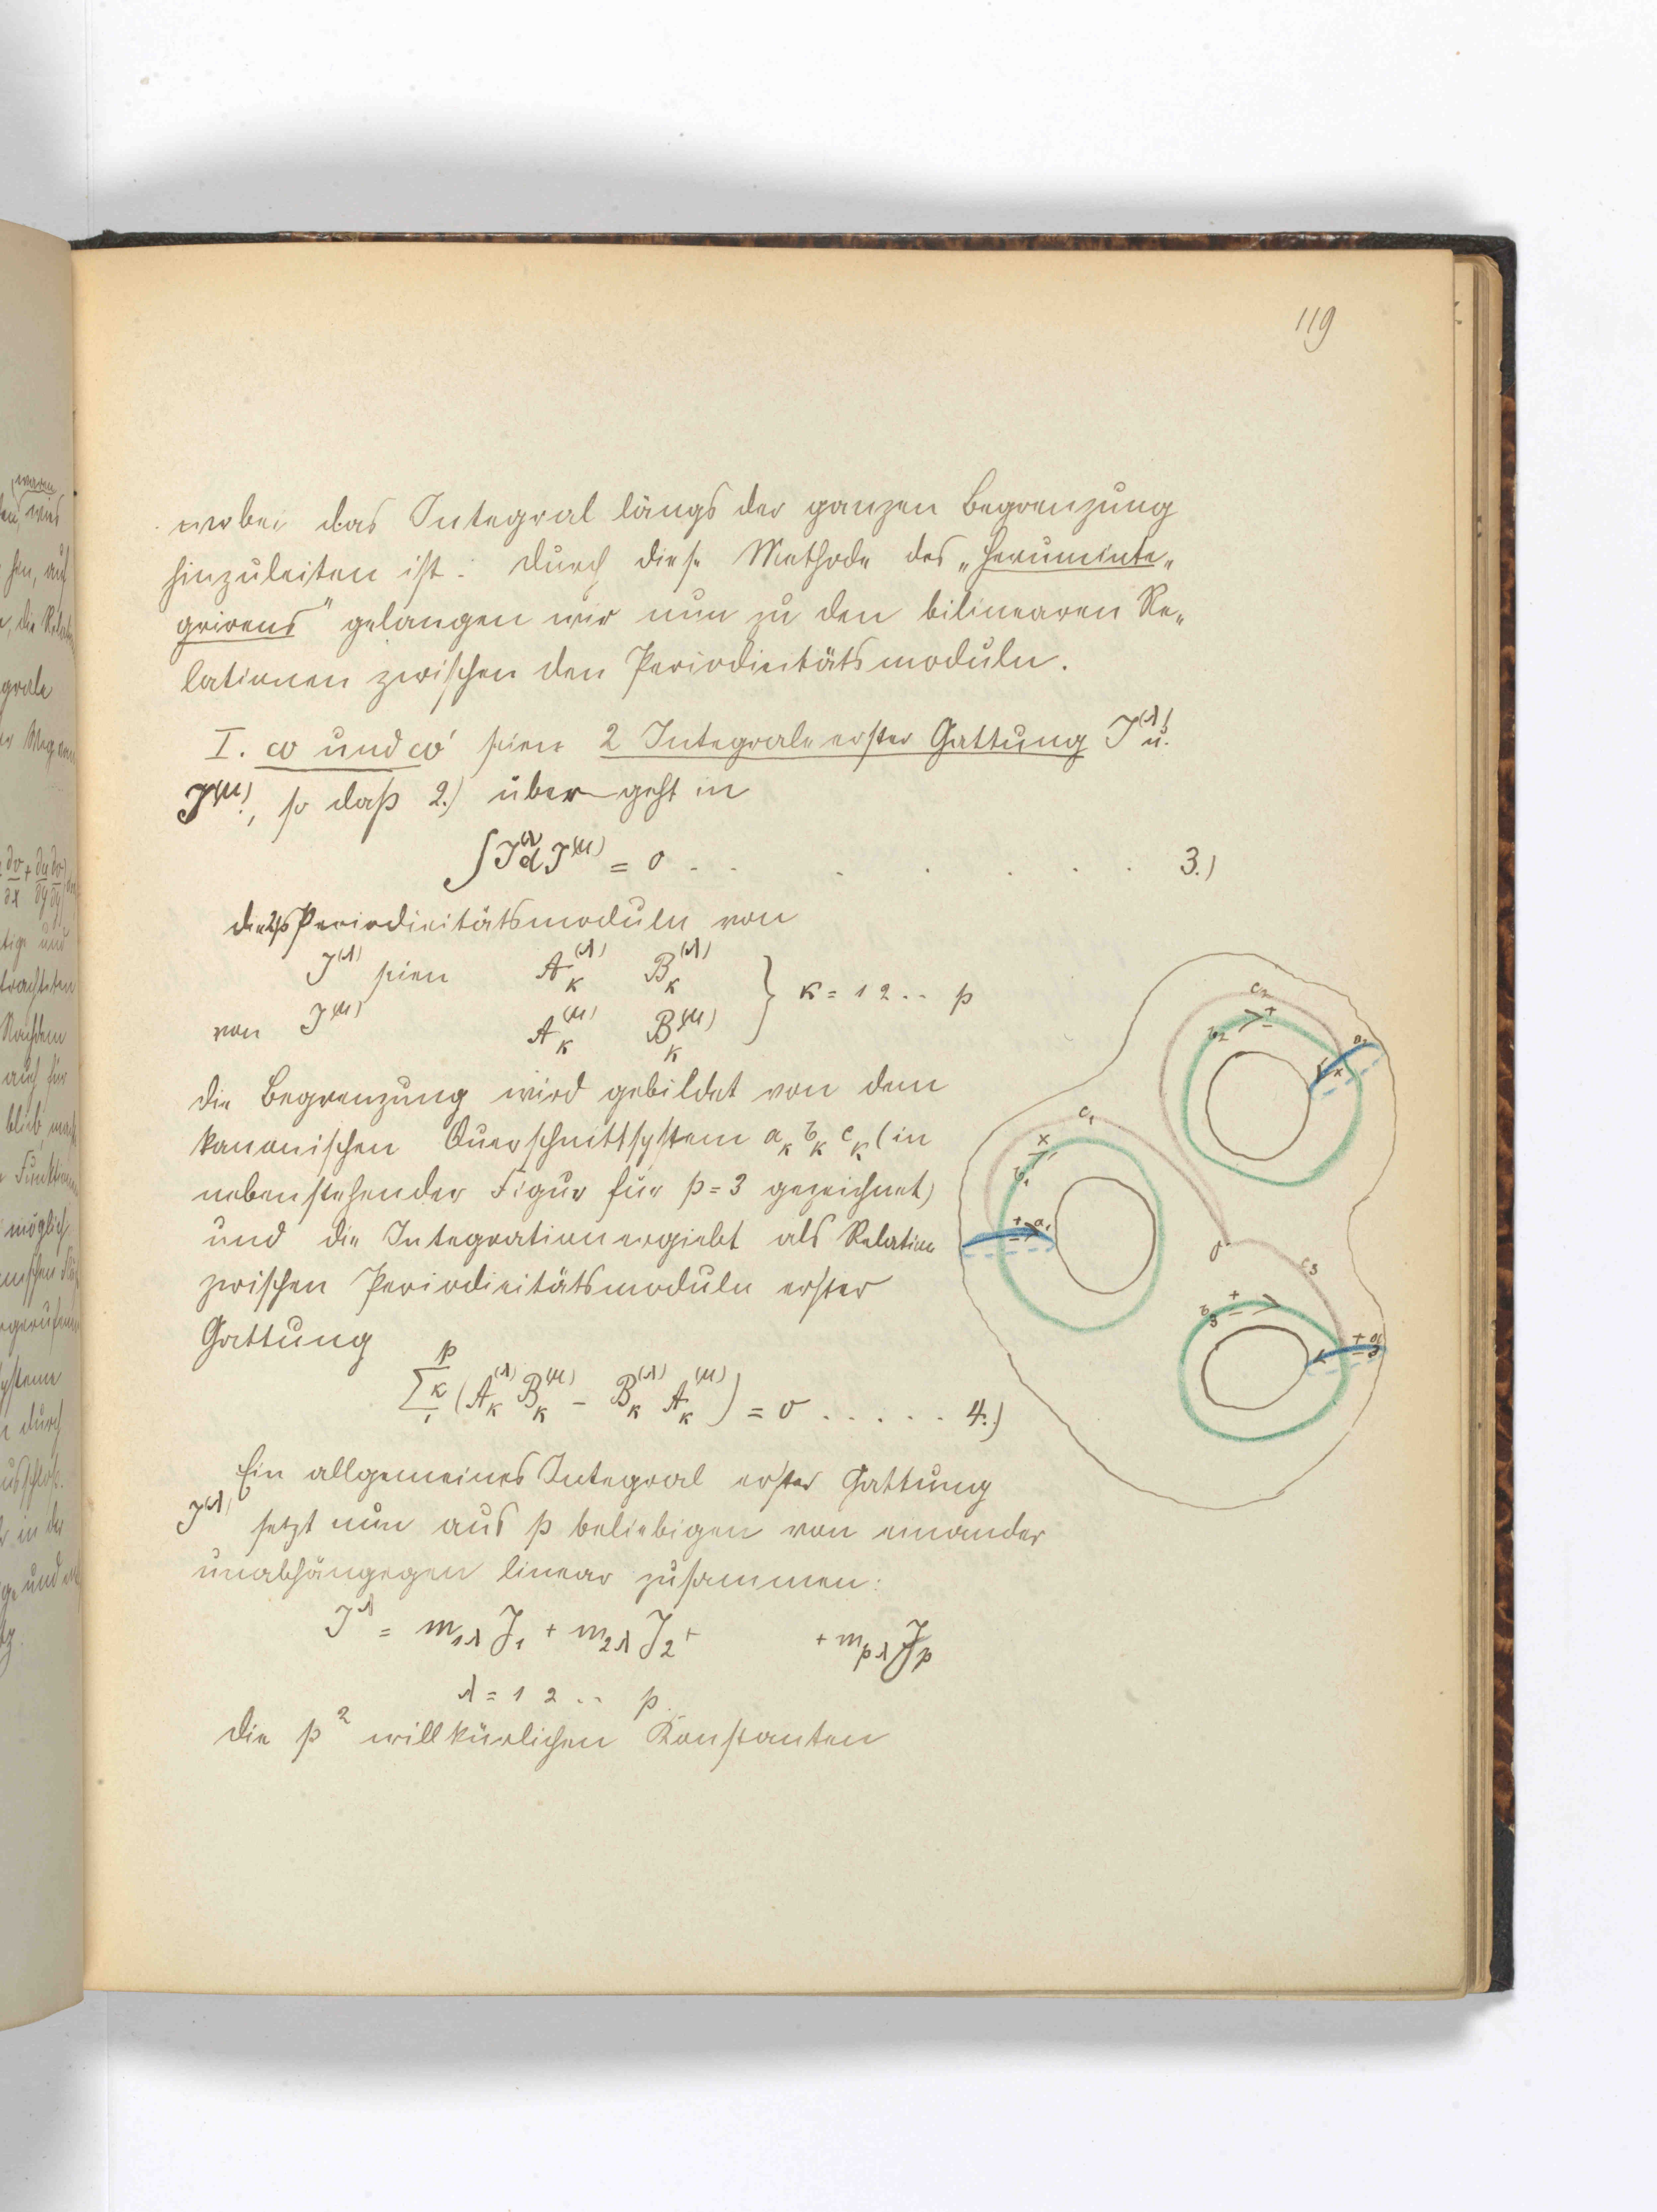 119
wobei das Integral längs der ganzen Begrenzung
hinzuleiten ist. Durch diese Methode des „Heruminte„
grirens" gelangen wir nun zu den bilinearen Re„
lationen zwischen den Periodicitätsmoduln.
I. ω und ω' seien 2 Integrale erster Gattung J^(λ) u.
J^(μ), so daß 2.) übergeht in
∫J^(λ) dJ^(μ) = 0 . . . . . . . . 3.)
die 2p Periodicitätsmoduln von
J^(λ) seien A_κ^(λ) B_κ^(λ)
von J^(μ) A_κ^(μ) B_κ^(μ) } κ = 1 2 .. p
die Begrenzung wird gebildet von dem
kanonischen Querschnittsystem a_κ b_κ c_κ (in
nebenstehender Figur für p = 3 gezeichnet)
und die Integration ergiebt als Relation
zwischen Periodicitätsmoduln erster
Gattung
Σ_1^p κ (A_κ^(λ) B_κ^(μ) − B_κ^(λ) A_κ^(μ)) = 0 . . . . . 4.)
Ein allgemeines Integral erster Gattung
J^(λ) setzt nun aus p beliebigen von einander
unabhängegen linear zusammen:
J^λ = m_1λ J_1 + m_2λ J_2 + + m_pλ J_p
λ = 1 2 .. p
die p² willkürlichen Konstanten
c_2
b_2 + −
a_2
+
c_1
+ −
b_1
+ a_1
−
0
c_3
b_3 + −
+ a_3
−